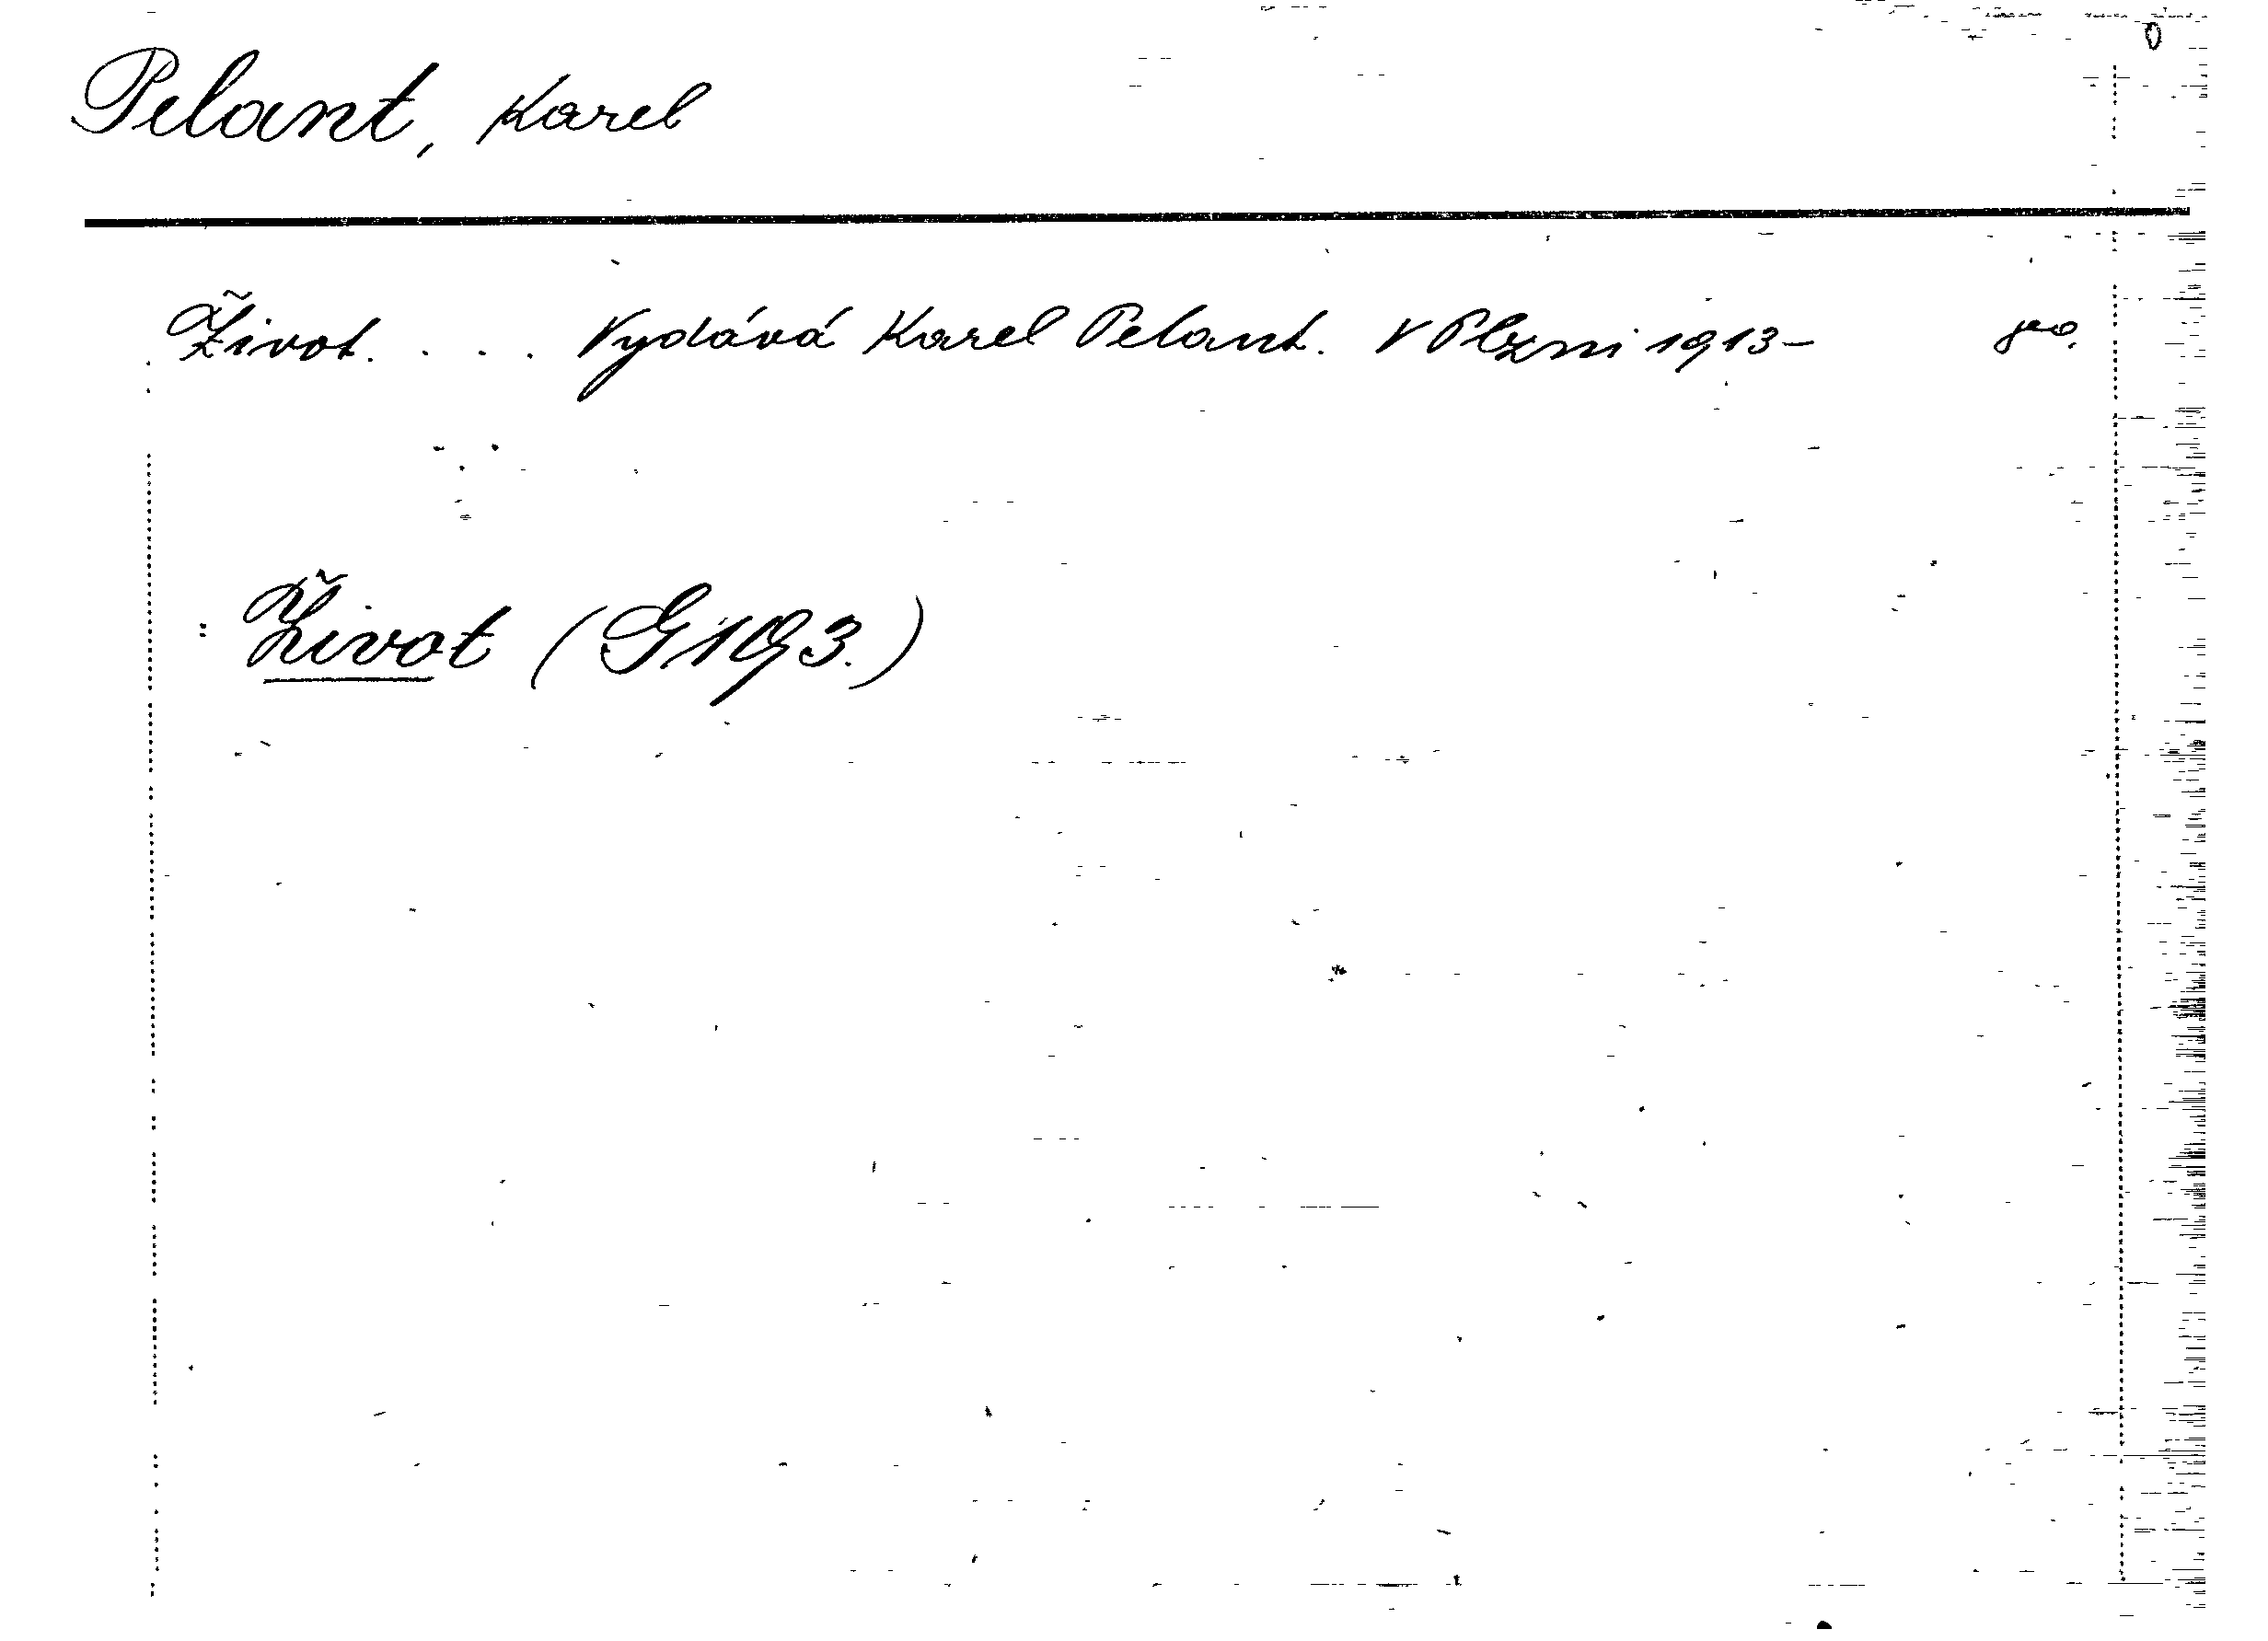 Pelant, Karel
Život. . . . Vydává Karel Pelant. V Plzni 1913-
: Život (G 193.)